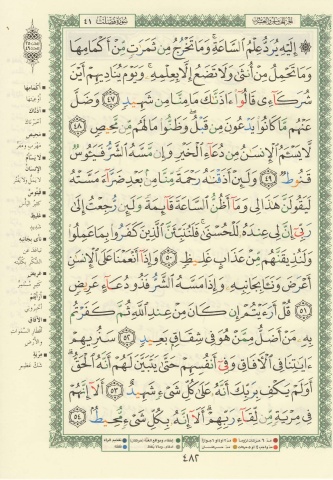 الجزء الخامس والعشرون
سورة فصلت ٤١
إِلَيْهِ يُرَدُّ عِلْمُ ٱلسَّاعَةِ وَمَا تَخْرُجُ مِن ثَمَرَٰتٍ مِّنْ أَكْمَامِهَا
وَمَا تَحْمِلُ مِنْ أُنثَىٰ وَلَا تَضَعُ إِلَّا بِعِلْمِهِۦ وَيَوْمَ يُنَادِيهِمْ أَيْنَ
شُرَكَآءِى قَالُوٓا۟ ءَاذَنَّٰكَ مَا مِنَّا مِن شَهِيدٍ ٤٧ وَضَلَّ
عَنْهُم مَّا كَانُوا۟ يَدْعُونَ مِن قَبْلُ وَظَنُّوا۟ مَا لَهُم مِّن مَّحِيصٍ ٤٨
لَّا يَسْـَٔمُ ٱلْإِنسَٰنُ مِن دُعَآءِ ٱلْخَيْرِ وَإِن مَّسَّهُ ٱلشَّرُّ فَيَـُٔوسٌ
قَنُوطٌ ٤٩ وَلَئِنْ أَذَقْنَٰهُ رَحْمَةً مِّنَّا مِنۢ بَعْدِ ضَرَّآءَ مَسَّتْهُ
لَيَقُولَنَّ هَٰذَا لِى وَمَآ أَظُنُّ ٱلسَّاعَةَ قَآئِمَةً وَلَئِن رُّجِعْتُ إِلَىٰ
رَبِّىٓ إِنَّ لِى عِندَهُۥ لَلْحُسْنَىٰ فَلَنُنَبِّئَنَّ ٱلَّذِينَ كَفَرُوا۟ بِمَا عَمِلُوا۟
وَلَنُذِيقَنَّهُم مِّنْ عَذَابٍ غَلِيظٍ ٥٠ وَإِذَآ أَنْعَمْنَا عَلَى ٱلْإِنسَٰنِ
أَعْرَضَ وَنَـَٔا بِجَانِبِهِۦ وَإِذَا مَسَّهُ ٱلشَّرُّ فَذُو دُعَآءٍ عَرِيضٍ
٥١ قُلْ أَرَءَيْتُمْ إِن كَانَ مِنْ عِندِ ٱللَّهِ ثُمَّ كَفَرْتُم
بِهِۦ مَنْ أَضَلُّ مِمَّنْ هُوَ فِى شِقَاقٍۭ بَعِيدٍ ٥٢ سَنُرِيهِمْ
ءَايَٰتِنَا فِى ٱلْـَٔافَاقِ وَفِىٓ أَنفُسِهِمْ حَتَّىٰ يَتَبَيَّنَ لَهُمْ أَنَّهُ ٱلْحَقُّ
أَوَلَمْ يَكْفِ بِرَبِّكَ أَنَّهُۥ عَلَىٰ كُلِّ شَىْءٍ شَهِيدٌ ٥٣ أَلَآ إِنَّهُمْ
فِى مِرْيَةٍ مِّن لِّقَآءِ رَبِّهِمْ أَلَآ إِنَّهُۥ بِكُلِّ شَىْءٍ مُّحِيطٌۢ ٥٤
أكمامها
أوعيتها
آذناك
أخبرناك
محيص
لا يسأم
الإنسان
فيئوس
غليظ
شديد
نأى بجانبه
عريض
أرأيتم
أخبروني
الآفاق
أقطار السموات
والأرض
مرية
شك عظيم
٤٨٢